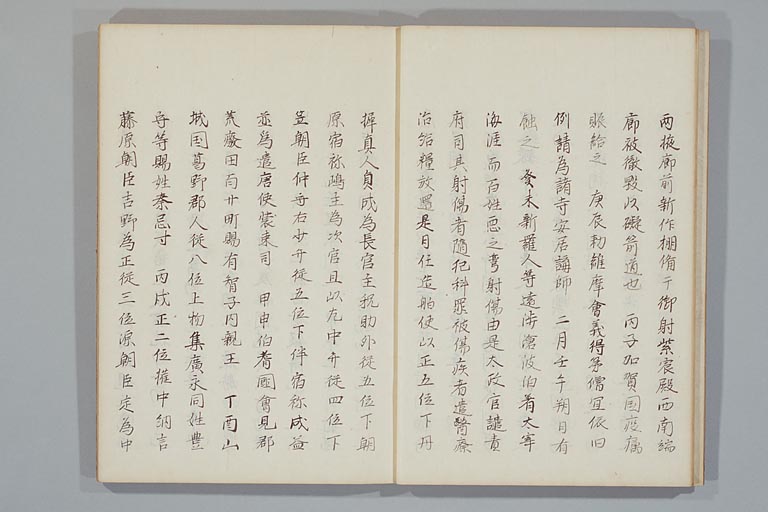 両掖廊前新作棚備于御射紫宸殿西南端
廊被徹毀以礙箭道也 丙子加賀国疫癘
賑給之 庚辰勅維摩會義得第僧宜依旧
例請為諸寺安居講師 二月壬午朔日有
蝕之 癸未新羅人等遠渉滄波泊着大宰
海涯而百姓悪之彎射傷由是太政官譴責
府司其射傷者随犯科罪被傷痍者遣醫療
治給糧放還是日任造舶使以正五位下丹
墀真人貞成為長官主税助外従五位下朝
原宿祢嶋主為次官且以左中弁従四位下
笠朝臣仲守右少弁従五位下伴宿祢成益
並為遣唐使装束司 甲申伯耆國會見郡
荒廢田百廿町賜有智子内親王 丁酉山
城国葛野郡人従八位上物集廣永同姓豊
守等賜姓秦忌寸 丙戌正二位權中納言
藤原朝臣吉野為正従三位源朝臣定為中